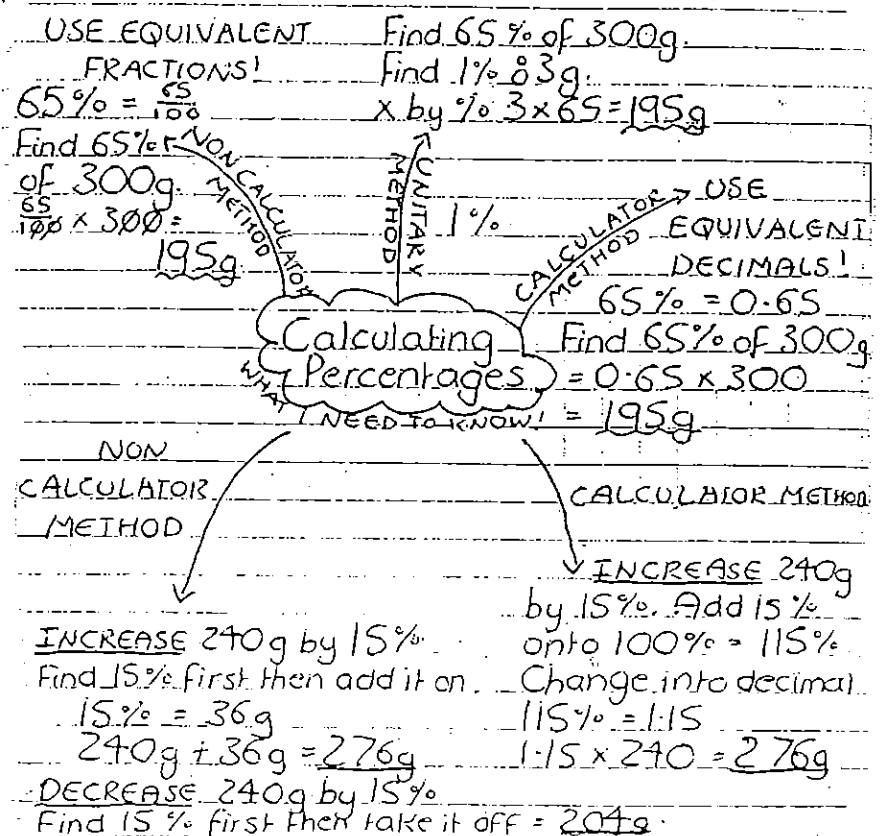 USE EQUIVALENT
FRACTIONS!
65% = 65/100
Find 65%
of 300g.
65/100 × 300 =
195g
NON CALCULATOR
METHOD
Find 65% of 300g.
Find 1% 8 3g.
× by % 3×65=195g
UNITARY
METHOD
1%
CALCULATOR
METHOD
USE
EQUIVALENT
DECIMALS!
65% = 0.65
Find 65% of 300g
= 0.65 × 300
= 195g
Calculating
Percentages
WHAT I NEED TO KNOW!
NON
CALCULATOR
METHOD
INCREASE 240g by 15%
Find 15% first then add it on.
15% = 36g
240g + 36g = 276g
DECREASE 240g by 15%
Find 15% first then take it off = 204g.
CALCULATOR METHOD
INCREASE 240g
by 15%. Add 15%
onto 100% = 115%
Change into decimal
115% = 1.15
1.15 × 240 = 276g